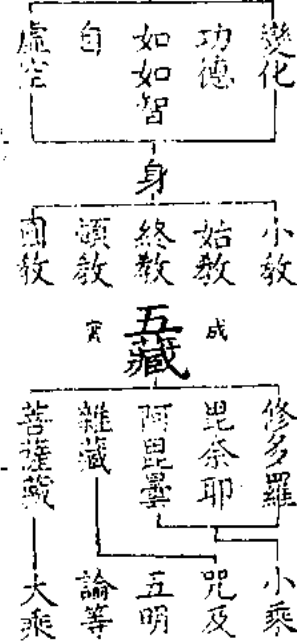 變化
功德
如如智
自
虛空
身
小教
始教
終教
頓教
圓教
成
五藏
實
修多羅
毘奈耶
阿毘曇
雜藏
菩薩藏
小乘
咒及
五明
論等
大乘